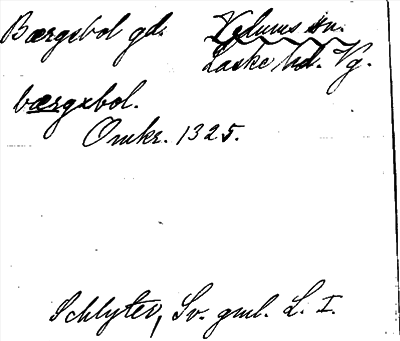 Bærgsbol gds Velums sn.
Laske hd. Vg.
bærgxbol.
Omkr. 1325.
Schlyter, Sv. gml. L. I.